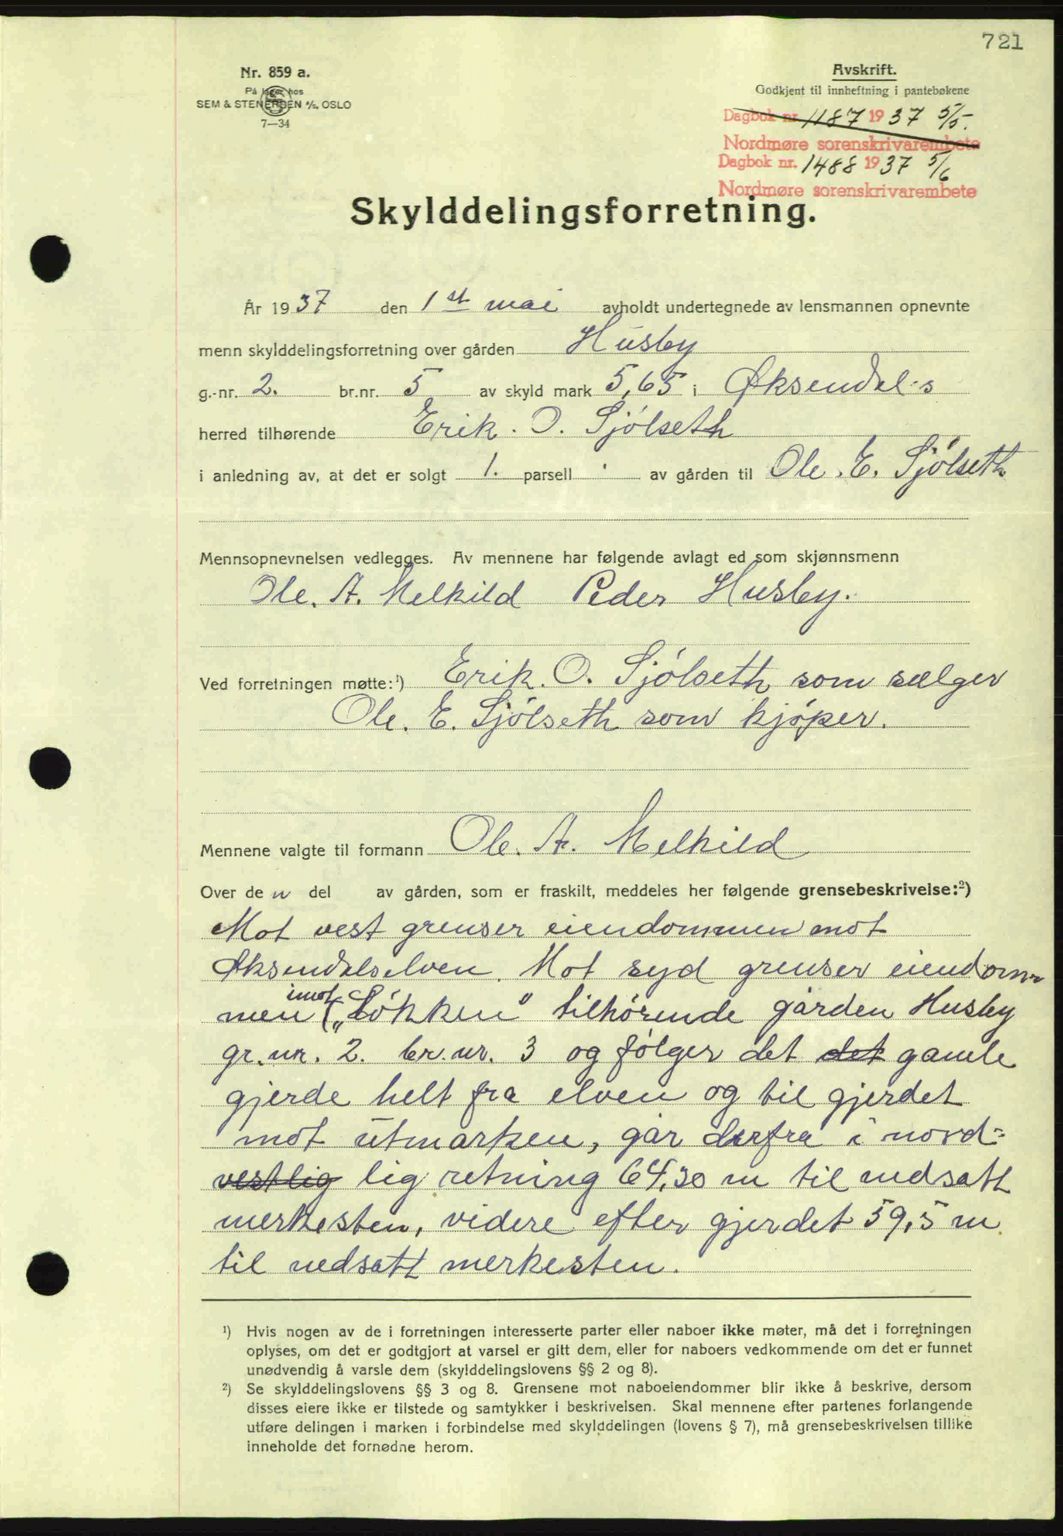 721
Nr. 859 a.
På lager hos
SEM & STENERSEN A/S. OSLO
7—34
Avskrift.
Godkjent til innheftning i pantebøkene
Dagbok nr. 1187 1937 5/5.
Nordmøre sorenskrivarembete
Dagbok nr. 1488 1937 5/6
Nordmøre sorenskrivarembete
Skylddelingsforretning.
År 1937 den 1st mai avholdt undertegnede av lensmannen opnevnte
menn skylddelingsforretning over gården Husby
g.-nr. 2. br.nr. 5 av skyld mark 5,65 i Øksendal-s
herred tilhørende Erik. O. Sjölseth
i anledning av, at det er solgt 1. parsell av gården til Ole. E. Sjölseth
Mennsopnevnelsen vedlegges. Av mennene har følgende avlagt ed som skjønnsmenn
Ole. A. Melkild Peder Husby.
Ved forretningen møtte:¹) Erik. O. Sjölseth som sælger
Ole. E. Sjölseth som kjöper.
Mennene valgte til formann Ole. A. Melkild
Over den del av gården, som er fraskilt, meddeles her følgende grensebeskrivelse:²)
Mot vest grenser eiendommen mot
Øksendalselven. Mot syd grenser eiendom
men imot („Lökken" tilhörende gården Husby
gr. nr. 2. br. nr. 3 og fölger det det gamle
gjerde helt fra elven og til gjerdet
mot utmarken, går derfra i nord-
vestlig lig retning 64,30 m til nedsatt
merkesten, videre efter gjerdet 59,5 m
til nedsatt merkesten.
¹) Hvis nogen av de i forretningen interesserte parter eller naboer ikke møter, må det i forretningen
oplyses, om det er godtgjort at varsel er gitt dem, eller for naboers vedkommende om det er funnet
unødvendig å varsle dem (skylddelingslovens §§ 2 og 8).
²) Se skylddelingslovens §§ 3 og 8. Grensene mot naboeiendommer blir ikke å beskrive, dersom
disses eiere ikke er tilstede og samtykker i beskrivelsen. Skal mennene efter partenes forlangende
utføre delingen i marken i forbindelse med skylddelingen (lovens § 7), må grensebeskrivelsen tillike
inneholde det fornødne herom.